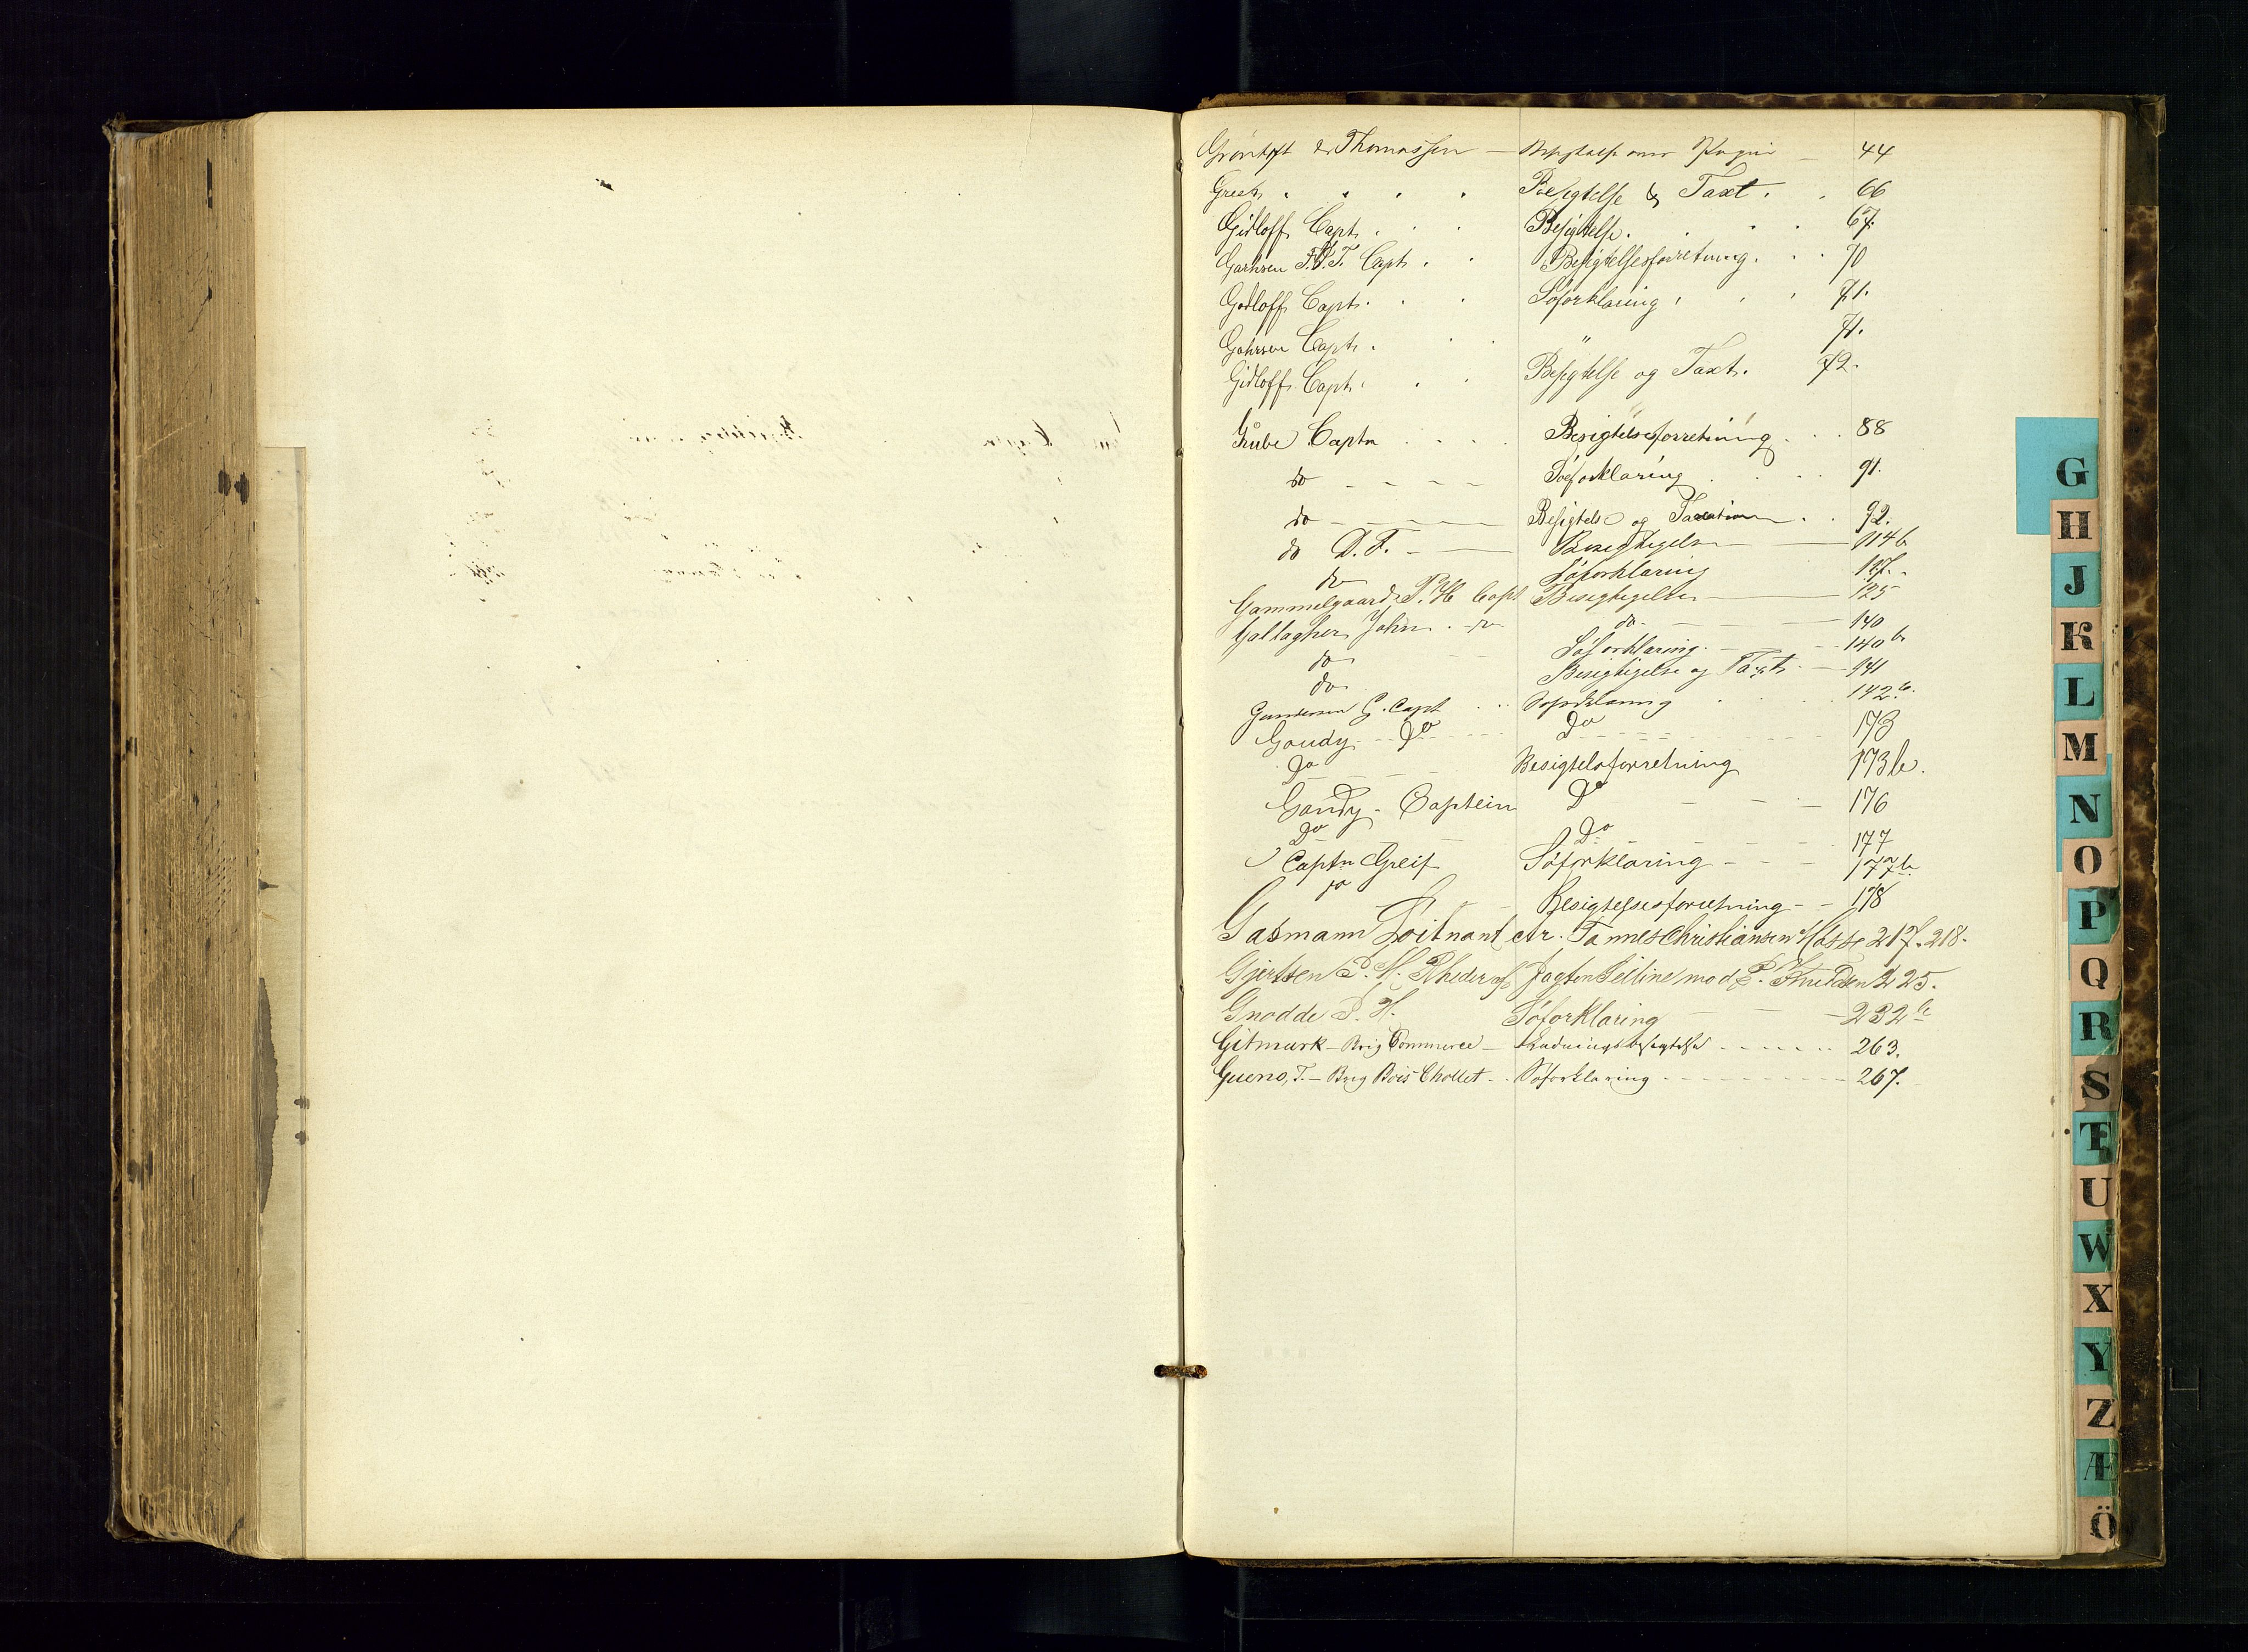 Gröntoft & Thomassen — Besigtelse over 44
Greek . . . . Besigtelse & Taxt . . 66
Gidloff Capt. . . . Besigtelse . . . . 67.
Capt. . . Besigtelsesforretning . . . 70
Gidloff Capt. . . . Söforklaring . . . 71.
Capt. . . . " 71.
Gidloff Capt. . . . Besigtelse og Taxt. 72.
Grube Captn . . . . Besigtelsesforretning . . . 88
do - - - - Söeforklaring . . . . 91.
do - - - - Besigtelse og Taxation . . 92.
do D. F. - — Besigtigelse — 114 b
do Söforklaring 127. -
Gammelgaard P. H. Capt Besigtigelse — 125
Gallagher John . do do - - - 140
do Söforklaring . - - 140 b
do Besigtigelse og Taxt - — 141
Gundersen G. Capt . . . Söforklaring . . . 142 b.
Goudy - - Do Do - - - 173
Do - - - Besigtelsforretning 173 b.
Goudy - Captein Do - - - 176
Do - - Do - - - 177
Captn Greif Söforklaring - - - 177 b.
do - - Besigtelsesforretning - - 178
Gasmann Loitnant ctr. Tannes Christiansen Hasse 217. 218.
Gjertsen P. M. Rheder af Jagten Selline mod P. Knudsen 225.
Gnodde P. H. Söforklaring — — — 232 b
Gitmark - Brig Commerce - Ladningsbesigtelse - - - - - 263.
Gueno, T. - Brig Bois Chollet - . Söforklaring - - - - - 267.
G
H
J
K
L
M
N
O
P
Q
R
S
T
U
W
X
Y
Z
Æ
Ö